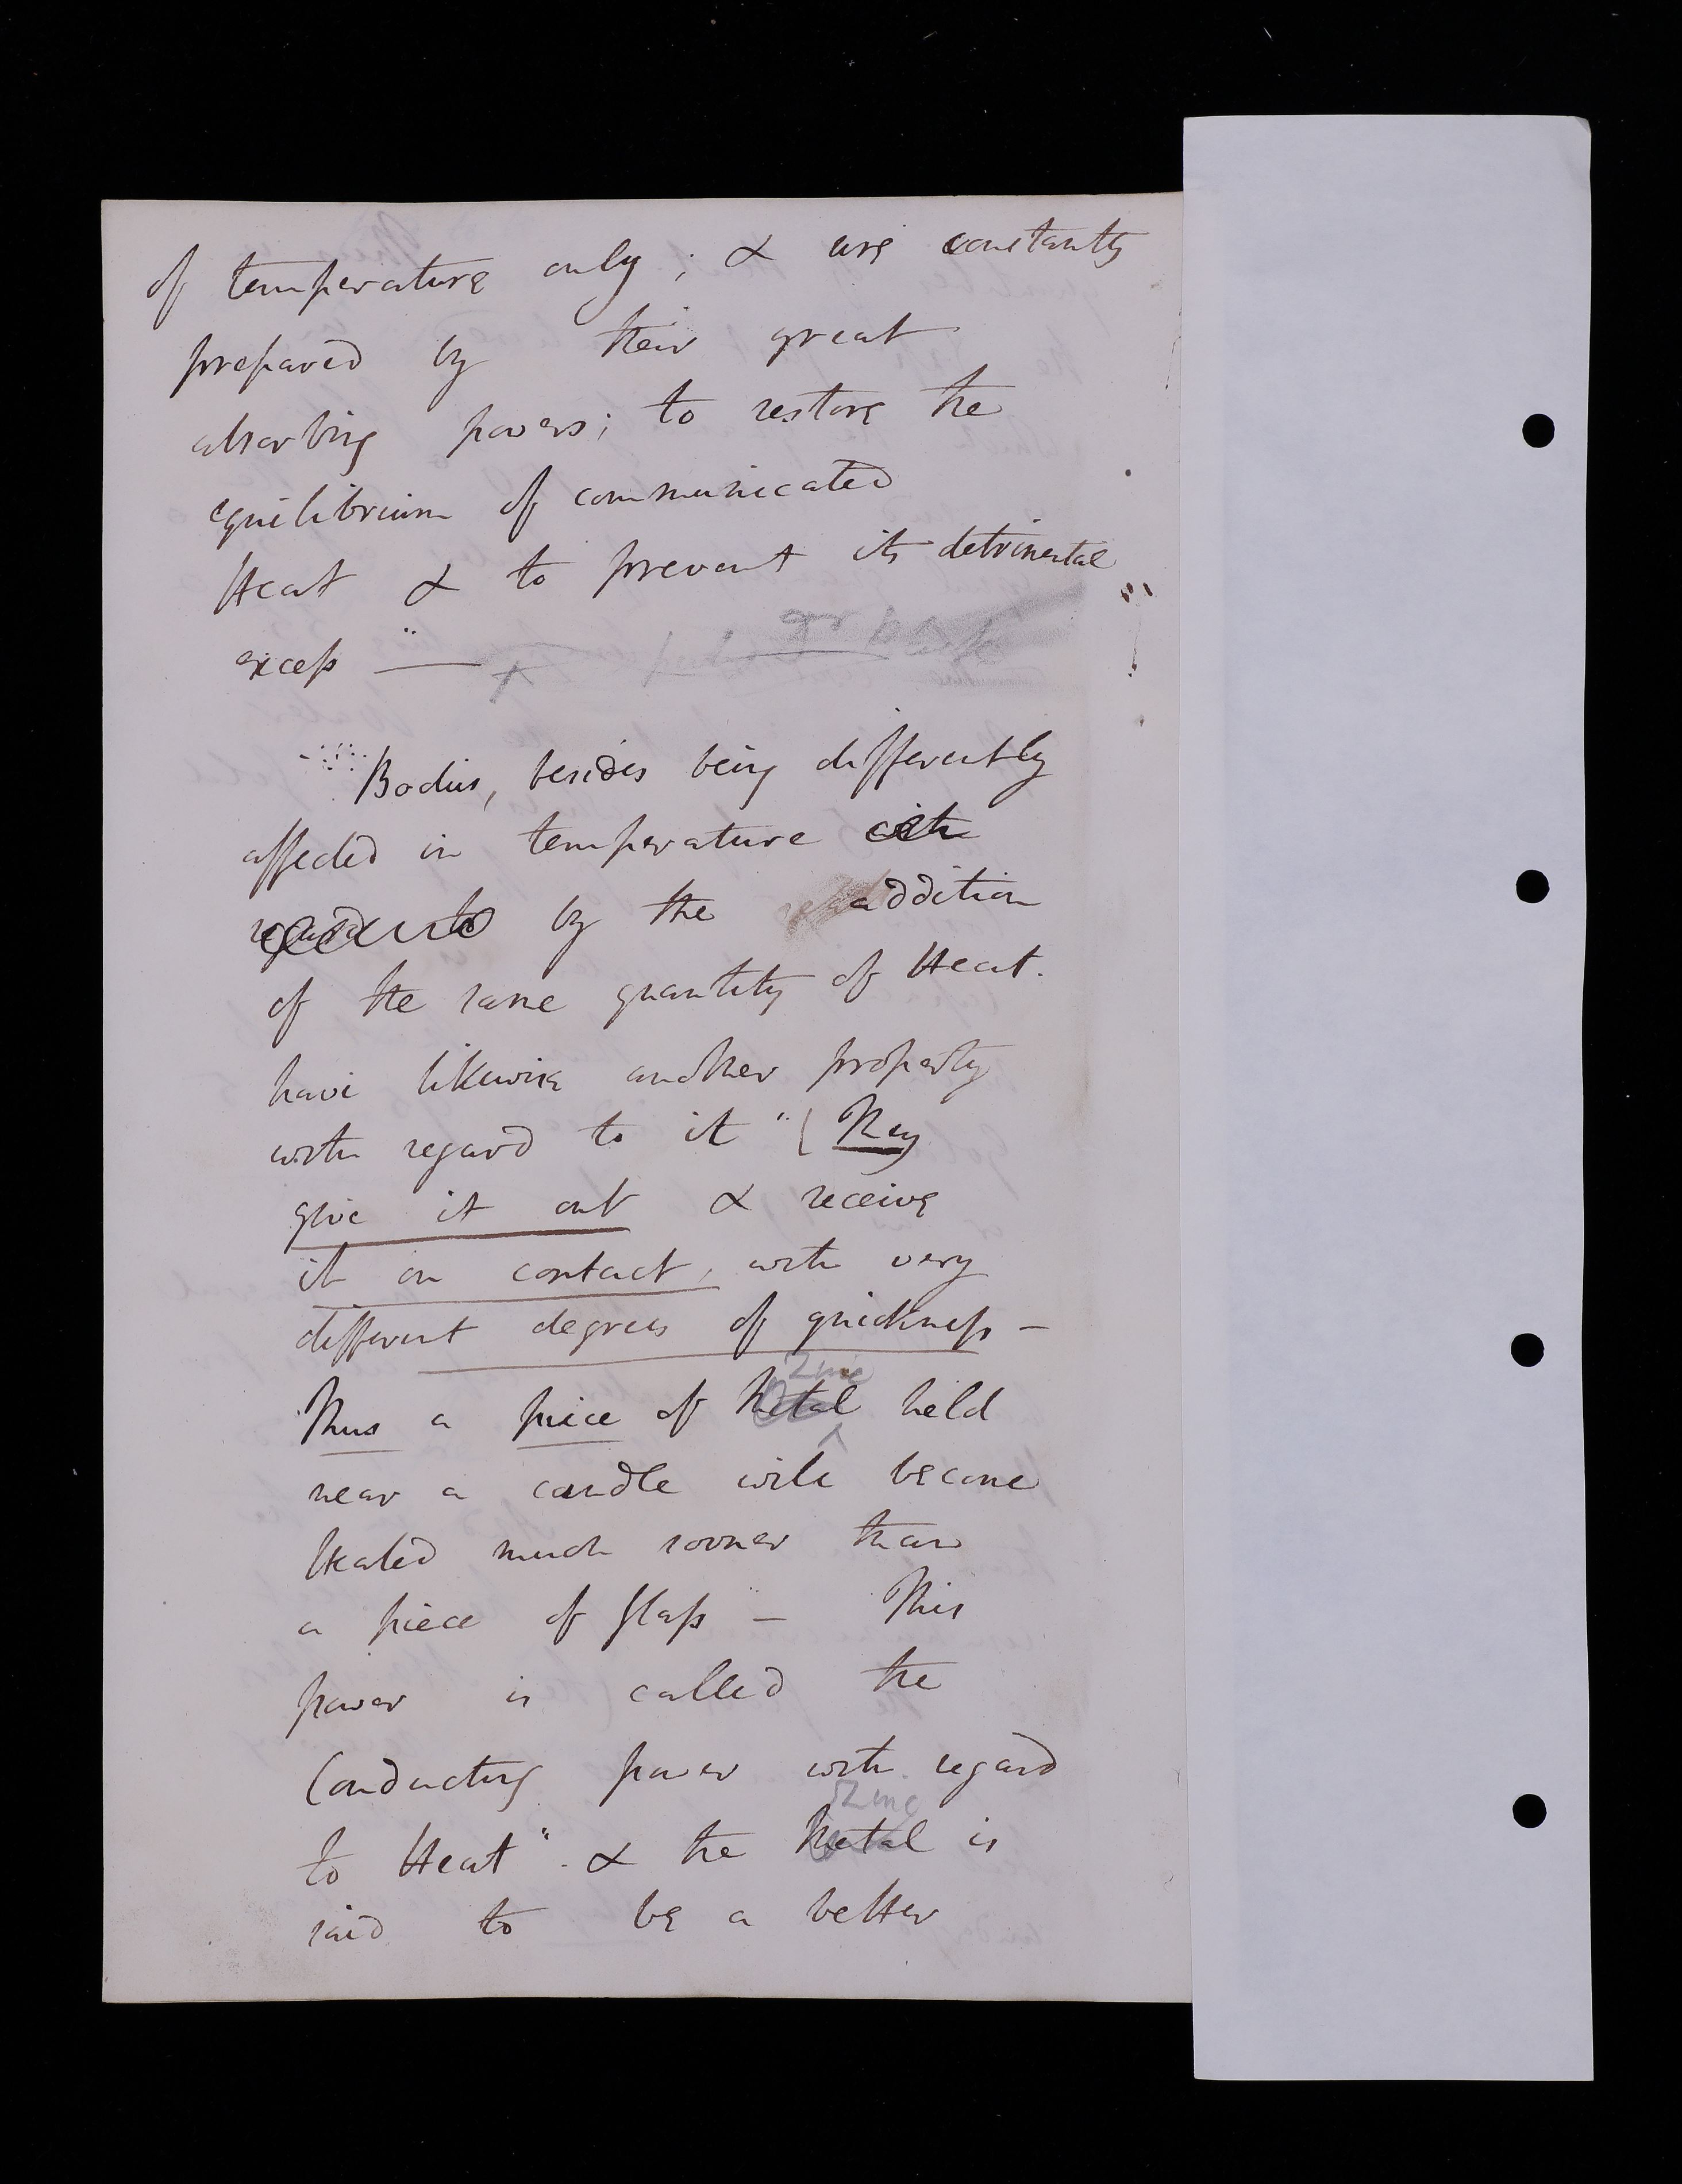 of temperature only; & are constantly
prepared by their great
absorbing powers; to restore the
equilibrium of communicated
Heat & to prevent its detrimental
excess" —
Bodies, besides being differently
affected in temperature with
regard to by the addition
of the same quantity of Heat.
have likewise another property
with regard to it" ( They
give it out & receive
it on contact, with very
different degrees of quickness —
Zinc
Thus a piece of Metal held
near a candle will become
Heated much sooner than
a piece of Glass — This
power is called the
Conducting power with regard
Zinc
to Heat" - & the Metal is
said to be a better